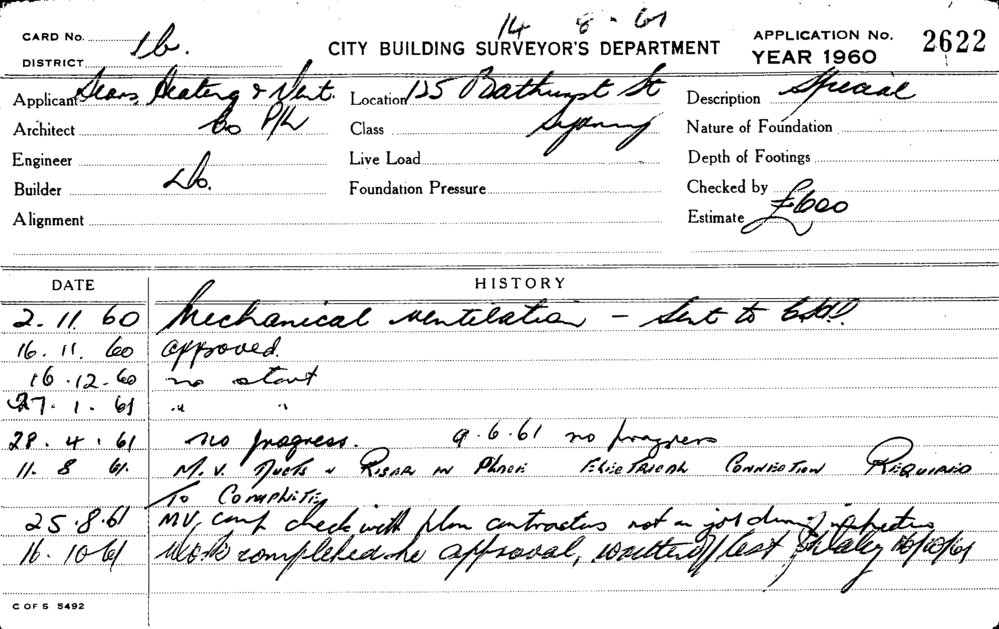 14 8. 61
CARD No. 1b.
DISTRICT
CITY BUILDING SURVEYOR'S DEPARTMENT
APPLICATION No. 2622
YEAR 1960
Applicant Sears Heating & Vent.
Location 125 Bathurst St
Description Special
Architect Co P/L
Class Sydney
Nature of Foundation
Engineer
Live Load
Depth of Footings
Builder Do.
Foundation Pressure
Checked by
Alignment
Estimate £600
DATE HISTORY
2. 11. 60 Mechanical ventilation - Sent to
16. 11. 60 approved.
16. 12. 60 no start
27. 1. 61 " "
28. 4. 61 no progress. 9. 6. 61 no progress
11. 8 61. M. V. DUCTS & RISER IN PLACE ELECTRICAL CONNECTION REQUIRED
TO COMPLETE
25. 8. 61 MV. check with plan contractors not on job during inspection
16. 10 61 Work completed approval, 16/10/61
C OF S 5492